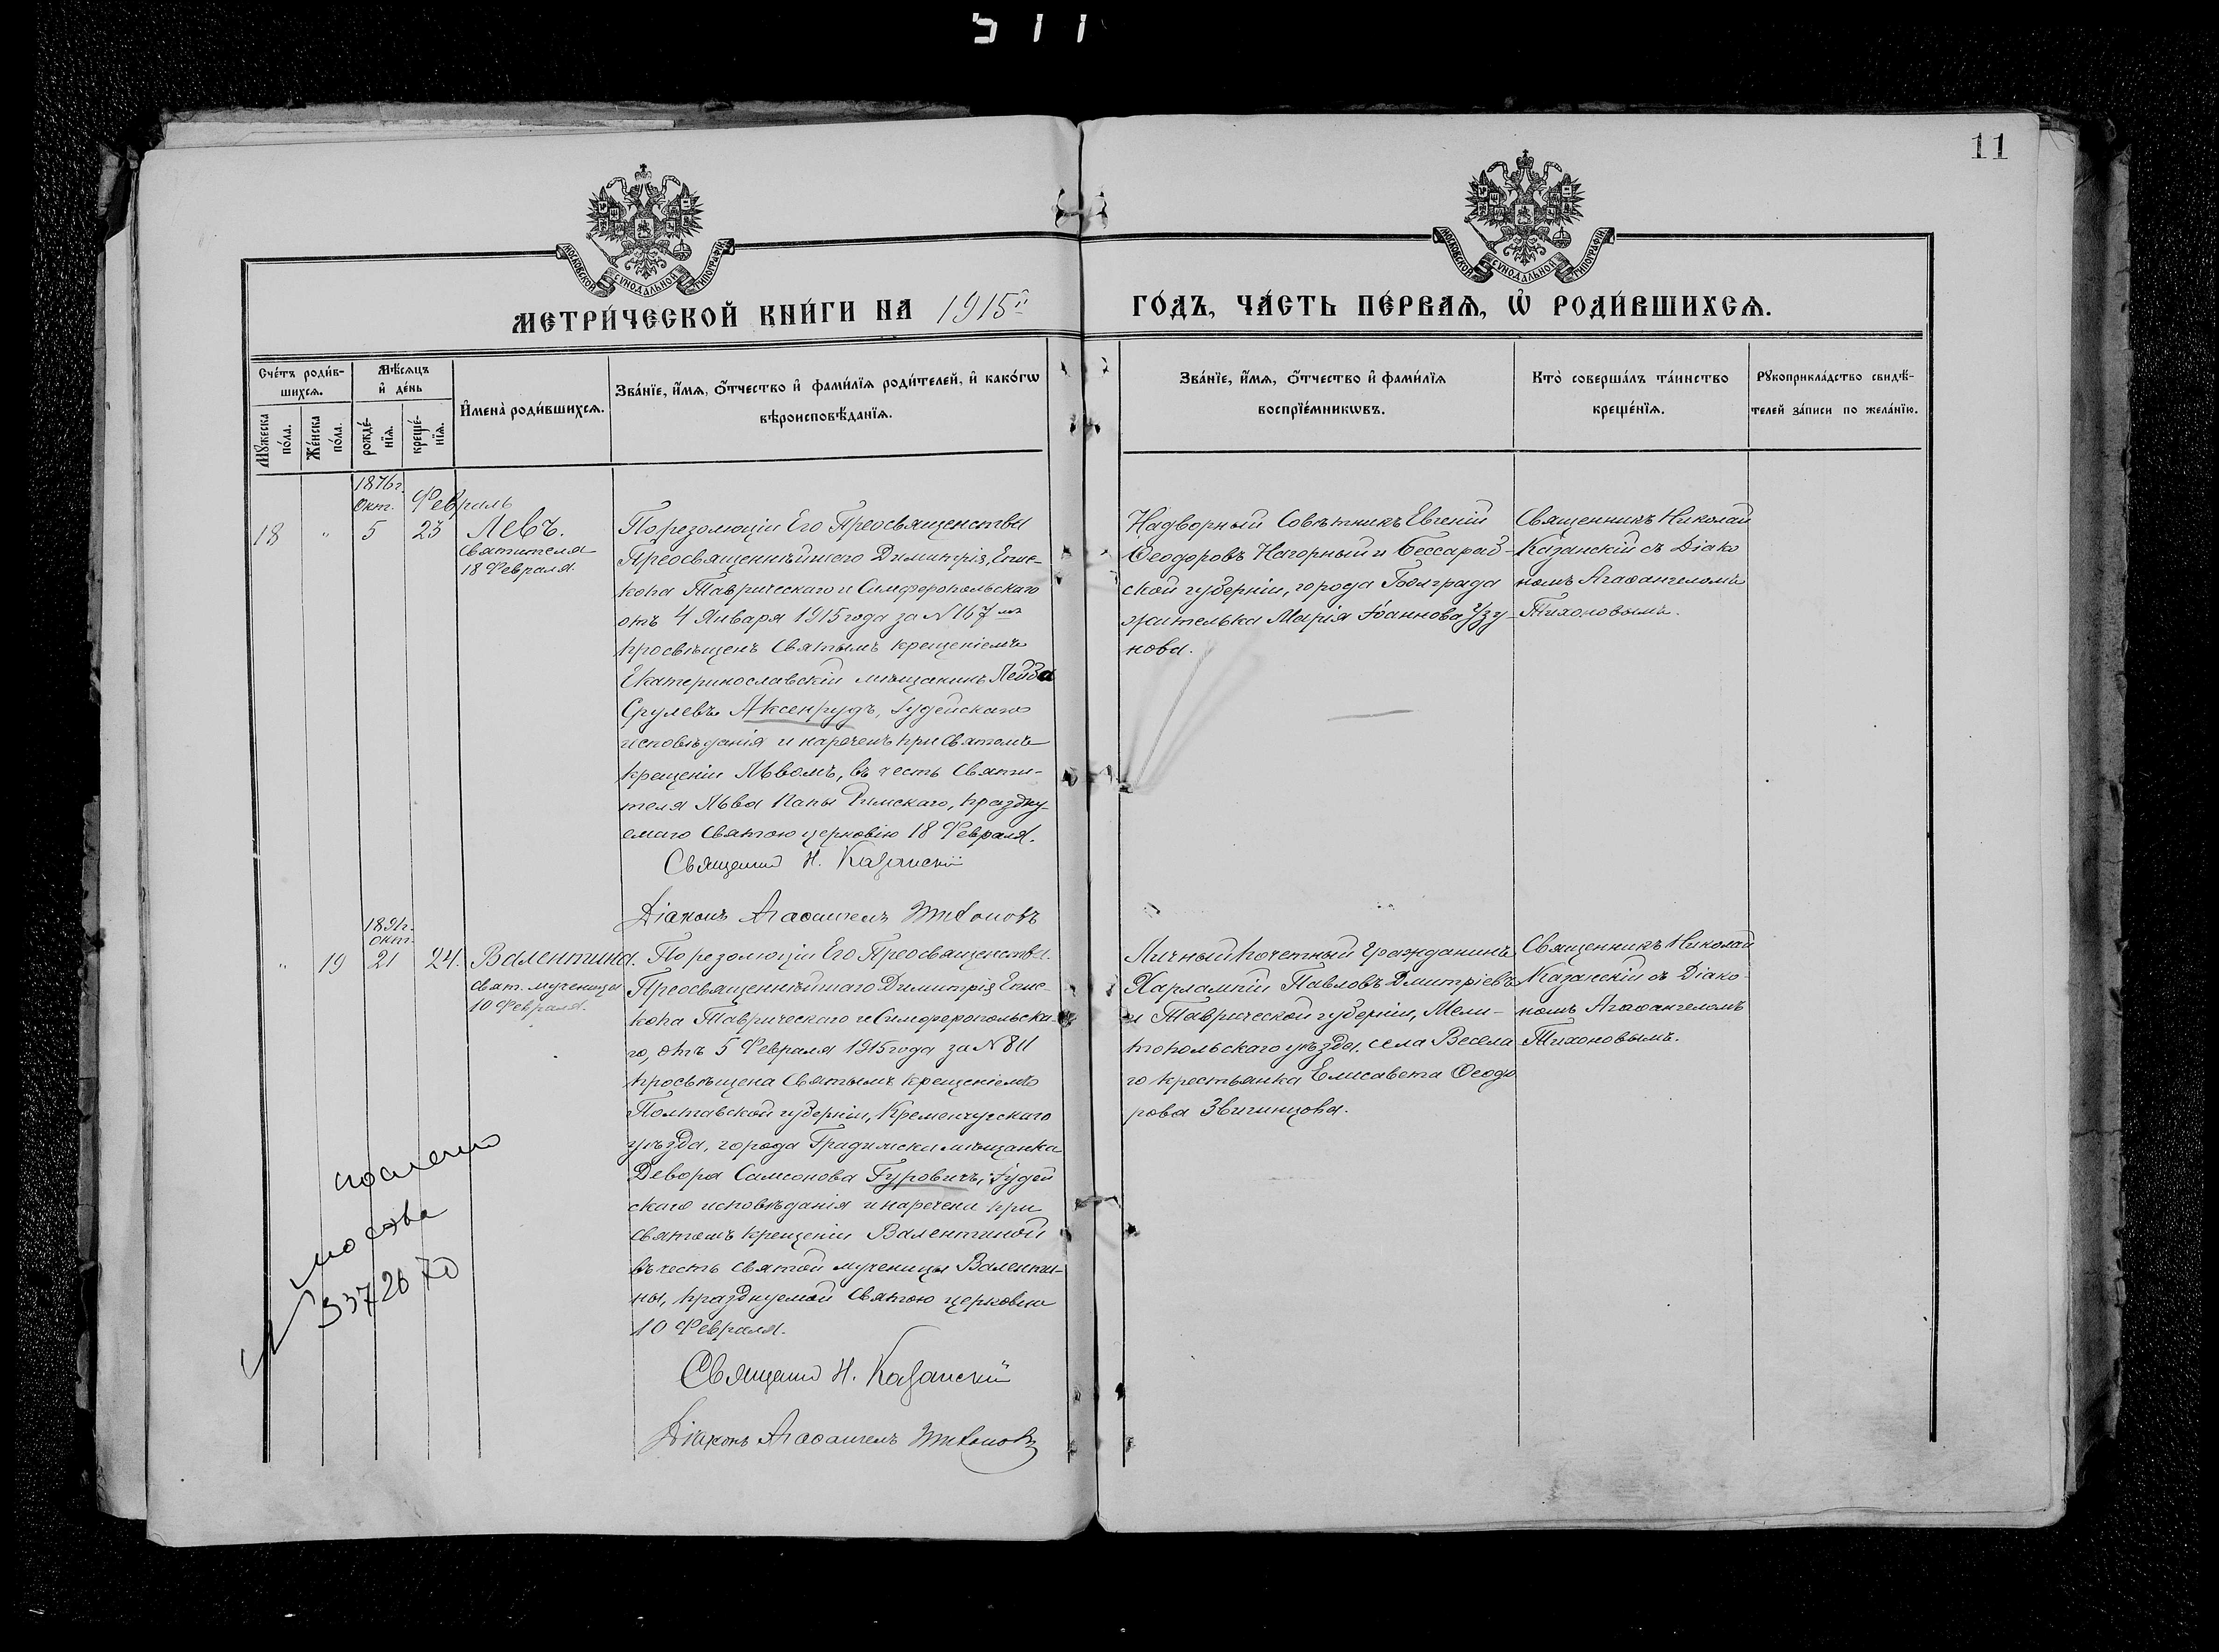 511
11
МОСКОВСКОЙ СѴНОДАЛЬНОЙ ТИПОГРАФІИ
МОСКОВСКОЙ СѴНОДАЛЬНОЙ ТИПОГРАФІИ
МЕТРИ́ЧЕСКОЙ КНИ́ГИ НА 1915й ГО́ДЪ, ЧА́СТЬ ПЕ́РВАѦ, Ѡ҆ РОДИ́ВШИХСѦ.
Сче́тъ роди́в-
шихсѧ.
Мꙋ́жеска по́ла.
Же́нска по́ла.
Мѣ́сѧцъ
и҆ де́нь
рожде́-нїѧ.
креще́-нїѧ.
И҆мена̀ роди́вшихсѧ.
Зва́нїе, и҆́мѧ, ѻ҆́тчество и҆ фами́лїѧ роди́телей, и҆ како́гѡ
вѣроисповѣ́данїѧ.
Зва́нїе, и҆́мѧ, ѻ҆́тчество и҆ фами́лїѧ
воспрїе́мникѡвъ.
Кто̀ соверша́лъ та́инство
креще́нїѧ.
Рꙋкоприкла́дство свидѣ́-
телей за́писи по жела́нїю.
1876г.
Окт. Февраль
18 " 5 23 Левъ.
Святителя
18 Февраля.
По резолюціи Его Преосвященства
Преосвященнѣйшаго Димитрія, Епис-
копа Таврическаго и Симферопольскаго
отъ 4 Января 1915 года за N 167мъ
просвѣщенъ Святымъ крещеніемъ
Екатеринославскій мѣщанинъ Лейба
Срулевъ Аксенрудъ, Іудейскаго
исповѣданія и нареченъ при Святомъ
крещеніи Львомъ, въ честь Святи-
теля Льва Папы Римскаго, праздну-
емаго Святою церковію 18 Февраля.
Священник Н. Казанскій
Діаконъ Агаѳангелъ Тихоновъ
Надворный Совѣтникъ Евгеній
Ѳеодоровъ Нагорный и Бессараб-
ской губерніи, города Болграда
жителька Марія Іоаннова Узу-
нова.
Священникъ Николай
Казанскій съ Діако
номъ Агаѳангеломъ
Тихоновымъ.
1891г.
окт.
" 19 21 24. Валентина.
свят. мученицы
10 Февраля.
По резолюціи Его Преосвященства.
Преосвященнѣйшаго Димитрія Епис-
копа Таврическаго и Симферопольска-
го, отъ 5 Февраля 1915 года за N 811
просвѣщена Святымъ крещеніемъ
Полтавской губерніи, Кременчугскаго
уѣзда, города Градижска мѣщанка
Девора Самсонова Гуровичъ, Іудей
скаго исповѣданія и наречена при
святомъ крещеніи Валентиной
въ честь святой мученицы Валенти-
ны, празднуемой Святою церковію
10 Февраля.
Священник Н. Казанскій
Діаконъ Агаѳангелъ Тихоновъ
Личный почетный Гражданинъ
Харлампій Павловъ Дмитріевъ
и Таврической губерніи, Мели-
топольскаго уѣзда. села Весела
го крестьянка Елисавета Ѳеодо
рова Звигинцова.
Священникъ Николай
Казанскій съ Діако-
номъ Агаѳангеломъ
Тихоновымъ.